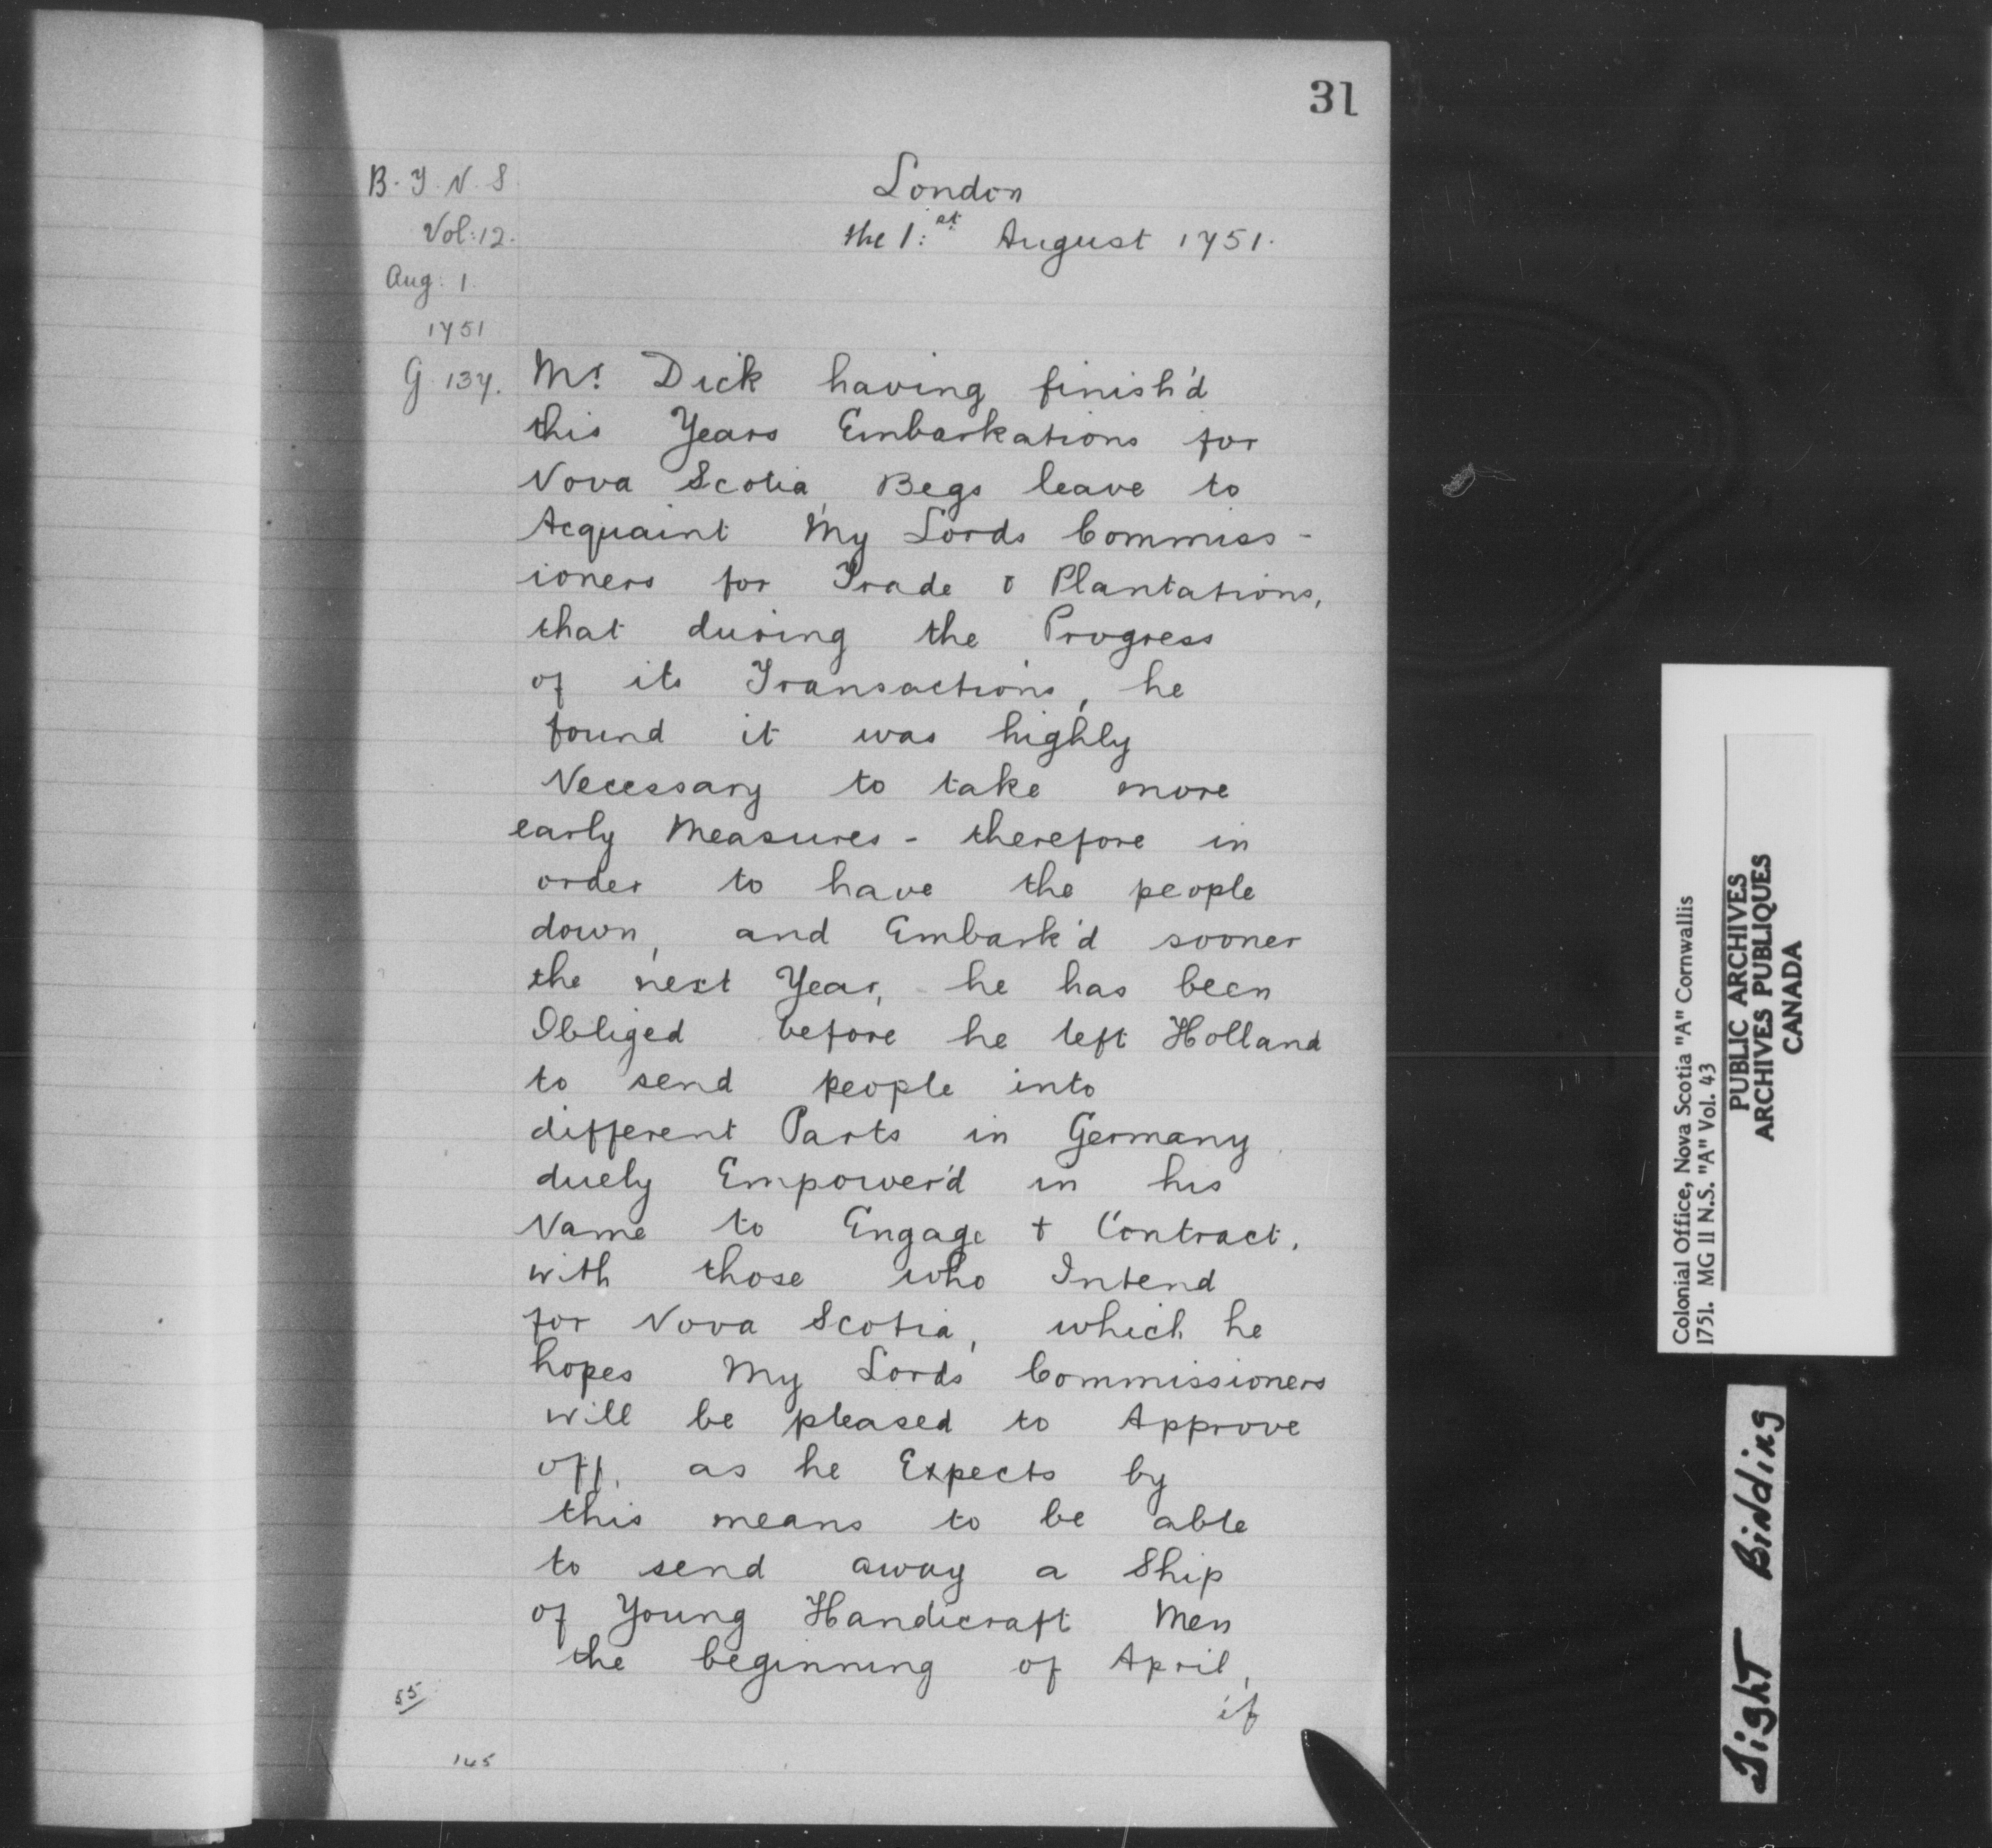 31
B. T. N. S
Vol: 12.
Aug: 1.
1751
G. 137.
London
the 1:st August 1751.
Mr. Dick having finish'd
this Years Embarkations for
Nova Scotia, Begs leave to
Acquaint My Lords Commiss-
ioners for Trade & Plantations,
that during the Progress
of its Transactions, he
found it was highly
Necessary to take more
early Measures - therefore in
order to have the people
down, and Embark'd sooner
the next Year, he has been
Obliged before he left Holland
to send people into
different Parts in Germany
duely Empower'd in his
Name to Engage & Contract,
with those who Intend
for Nova Scotia, which he
hopes My Lords Commissioners
will be pleased to Approve
off, as he Expects by
this means to be able
to send away a Ship
of Young Handicraft Men
the beginning of April,
if
55
145
Colonial Office, Nova Scotia "A" Cornwallis
1751. MG 11 N.S. "A" Vol. 43
PUBLIC ARCHIVES
ARCHIVES PUBLIQUES
CANADA
Tight Binding